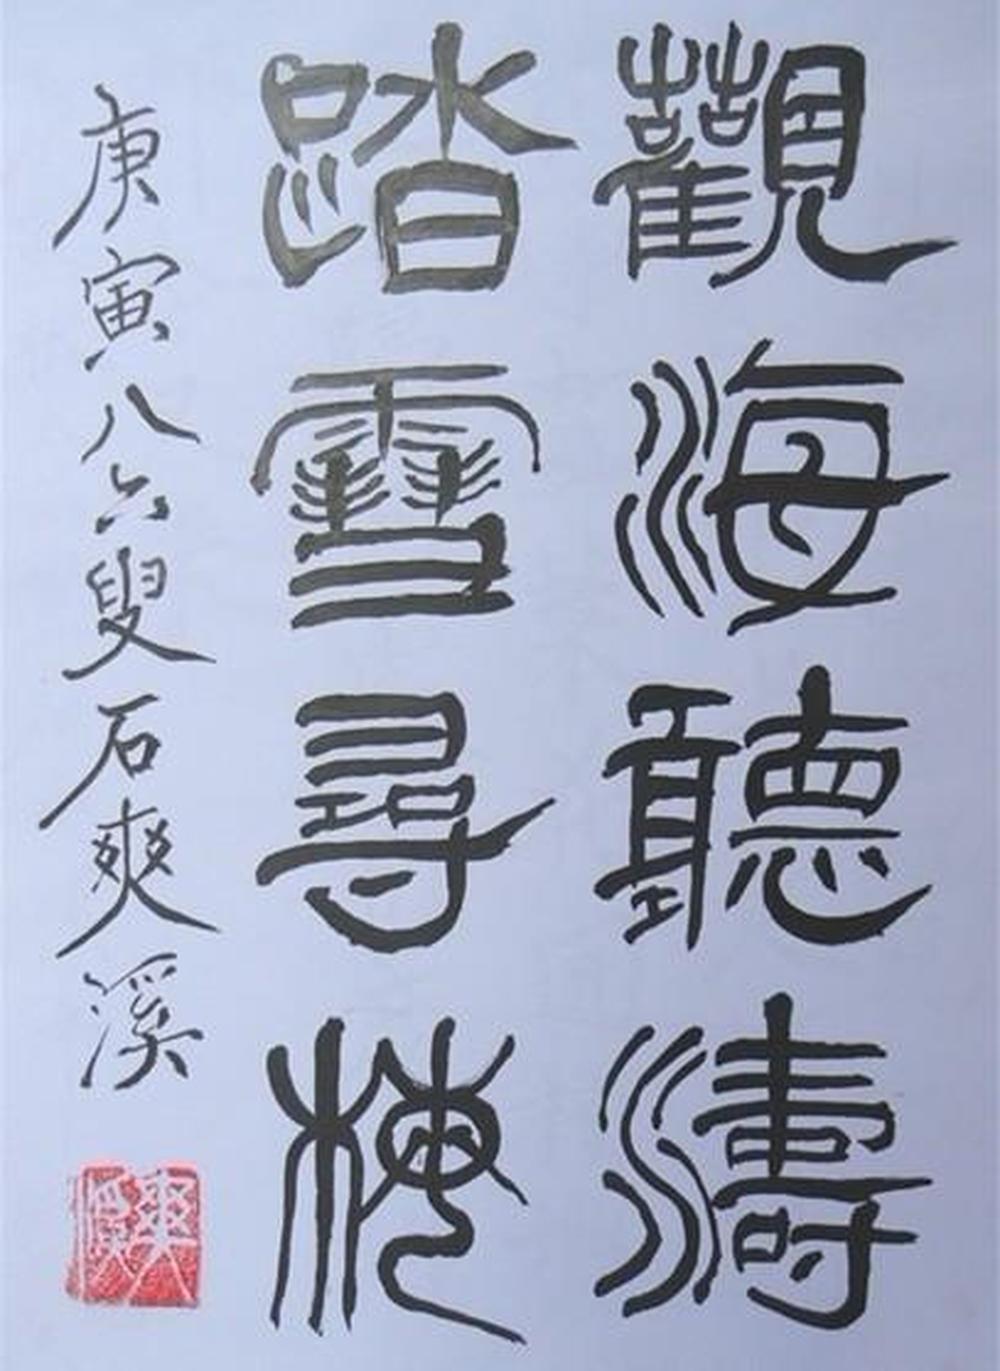 觀海聽濤
踏雪尋梅
庚寅八六叟石爽溪
爽溪